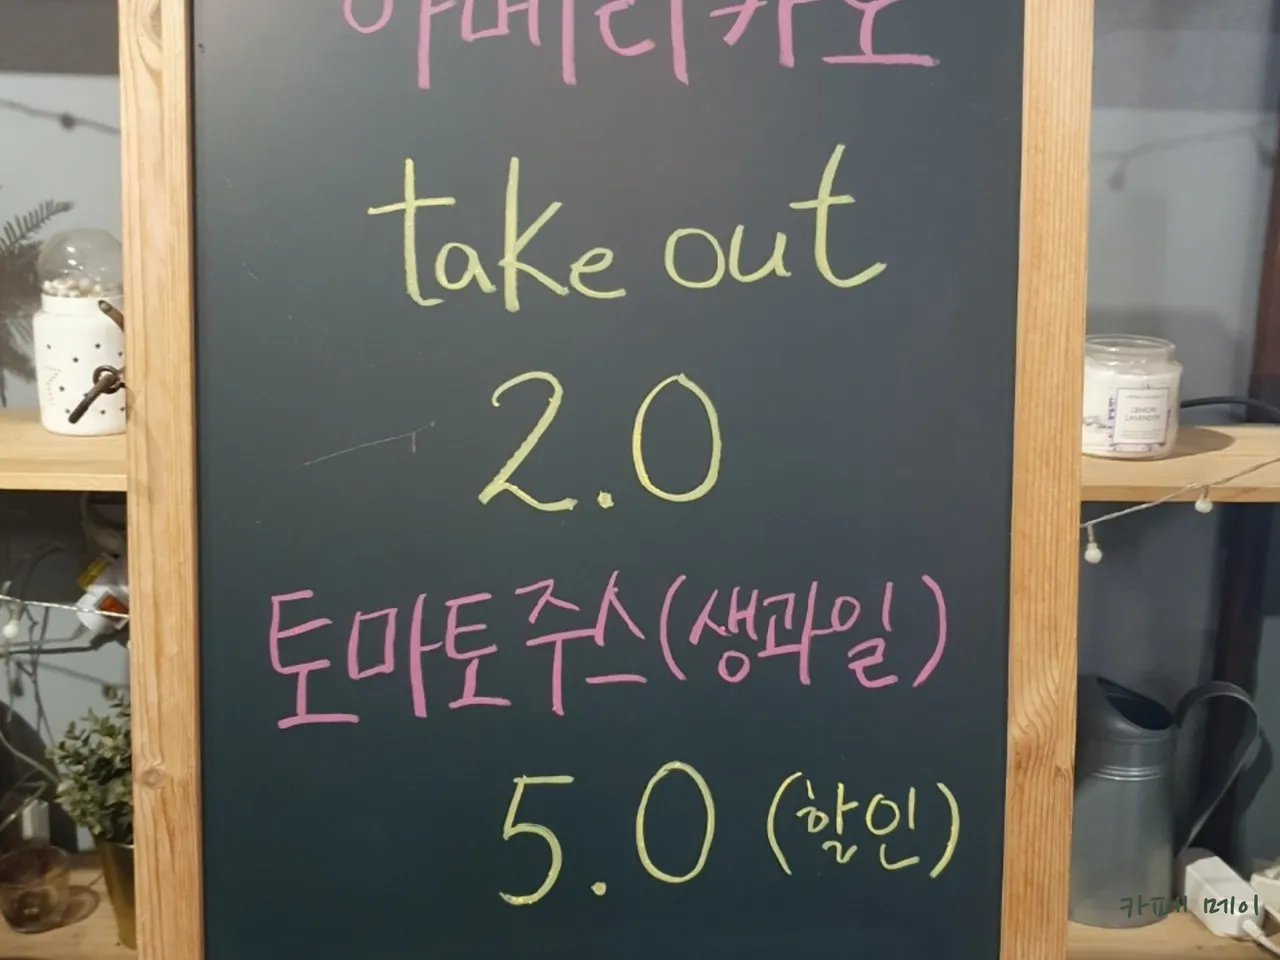 아메리카노
take out
2.0
토마토주스(생과일)
5.0 (할인)
LEMON
LAVENDER
카페 메이